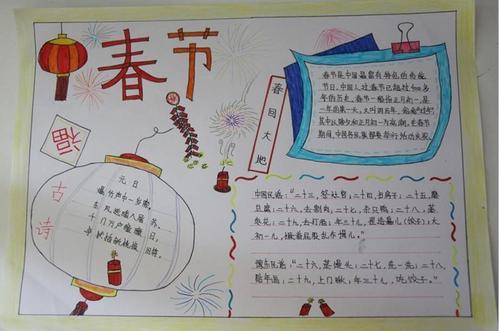 春节
春节是中国最富有特色的传统
节日,中国人过春节已超过4000多
年的历史,春节一般指正月初一,是
一年的第一天,又叫阴历年,俗称"过年"
其中以除夕和正月初一为高潮,在春节
期间,中国各民族都要举行活动庆祝
春回大地
福
古诗
元日
爆竹声中一岁除,
风 入屠苏
千门万户 日,
桃换 旧符.
中国民谣:"二十三,祭灶官;二十四,扫房子;二十五,磨
豆腐;二十六,去割肉;二十七,去只鸡;二十八,蒸
枣花;二十九,去打酒;年三十儿,捏造扁儿(饺子);大
初一儿,撅着屁股乱作揖儿."
豫东民谣:"二十六,蒸馒头;二十七,洗一洗;二十八,
贴年画;二十九,上门瞅;年三十儿,吃饺子."